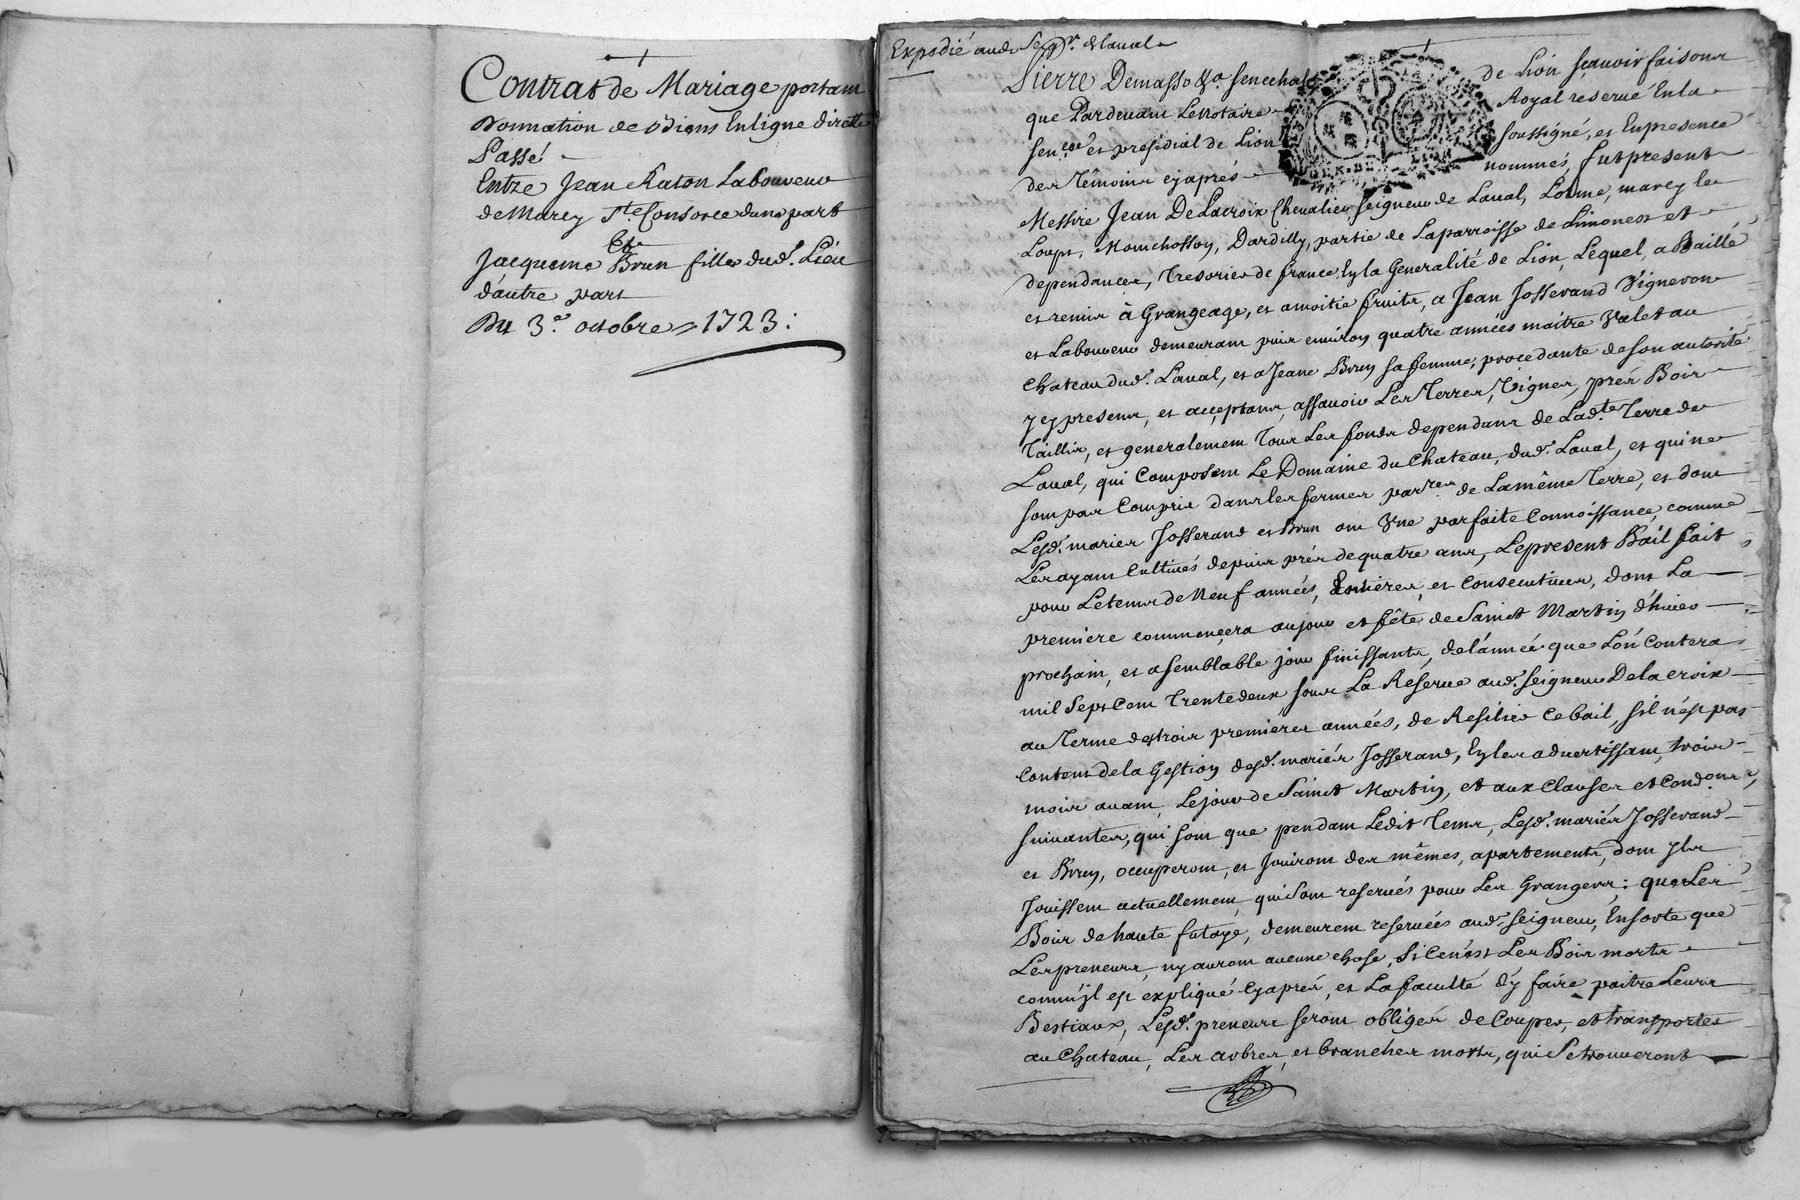 Contrat de Mariage portant
Donnation de biens En ligne directe
Passé
Entre Jean Raton Laboureur
de Marcy Ste Consorce d'une part
Et
Jacqueme Brun fille dud. Lieu
d'autre part
Du 3.e octobre 1723:
Expedié aud. Seigr. de laval
Pierre Demasso &a. senechal de Lion sçavoir faisons
que Pardevant Le Notaire Royal reservé En la
sencée et presidial de Lion soussigné, et En presence
des témoins cy après nommés fut present
Messire Jean De Lacroix Chevalier, seigneur de Laval, Lorme, marcy le
Loups, Monchosson, Dardilly, partie de La parroisse de Limonest et
dependances, Tresorier de france En la Generalité de Lion, Lequel, a Baillé
et remis à Grangeage, et a moitié fruits, a Jean Josserand Vigneron
et Laboureur demeurant puis environ quatre années maitre Valet au
chateau dud. Laval, et a Jeane Brun sa femme, procedante de son autorité
y cy presens, et acceptans, assavoir Les Terres, Vignes, prés Bois
Taillis, et generalement Tous Les fonds dependans de Lad.te Terre de
Laval, qui Composent Le Domaine du Chateau, dud. Laval, et qui ne
sont pas Compris dans les fermes par.res de La même Terre, et dont
Lesd. mariés Josserand et Brun ont Une parfaite Connoissance, comme
Les ayant Cultivés depuis près de quatre ans, Le present Bail fait
pour Le tems de Neuf années, Entieres, et Consecutives, dont La
premiere commencera au jour et fête de Sainct Martin d'hiver
prochain, et a semblable jour finissante, de l'année que L'on Contera
mil Sept Cent Trente deux, sous La Reserve aud. seigneur De la croix
au Terme des trois premieres années, de Resilier Ce bail, s'il n'est pas
Content de la Gestion desd. mariés Josserand, En les advertissant, trois
mois avant Le jour de Sainct Martin, et aux Clauses et Cond.ons
suivantes, qui sont que pendant Ledit Tems, Lesd. mariés Josserand
et Brun, occuperont, et Jouiront des mêmes, apartements, dont Ils
Jouissent actuellement qui sont reservés pour Les Grangers; que Les
Bois de haute futaye, demeurent reservés aud. seigneur, En sorte que
Les preneurs, n'y auront aucune chose, Si Ce n'est Les Bois morts
comm'jl est expliqué Cy après, et La faculté d'y faire paitre Leurs
Bestiaux, Lesd. preneurs seront obligés de Couper, et transporter
au Chateau, Les arbres, et branches morts, qui Se trouveront